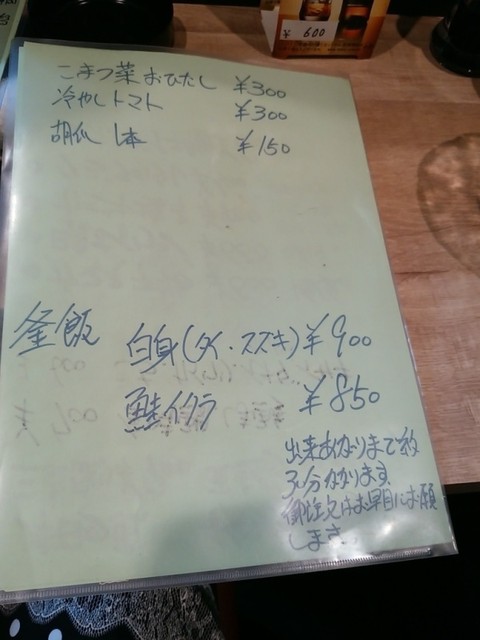 ¥ 600
こまつ菜 おひたし ¥300
冷やしトマト ¥300
胡瓜 1本 ¥150
釜飯 白身(タイ・スズキ) ¥900
鮭イクラ ¥850
出来あがりまで約
30分かかります
御注文はお早目にお願
します。